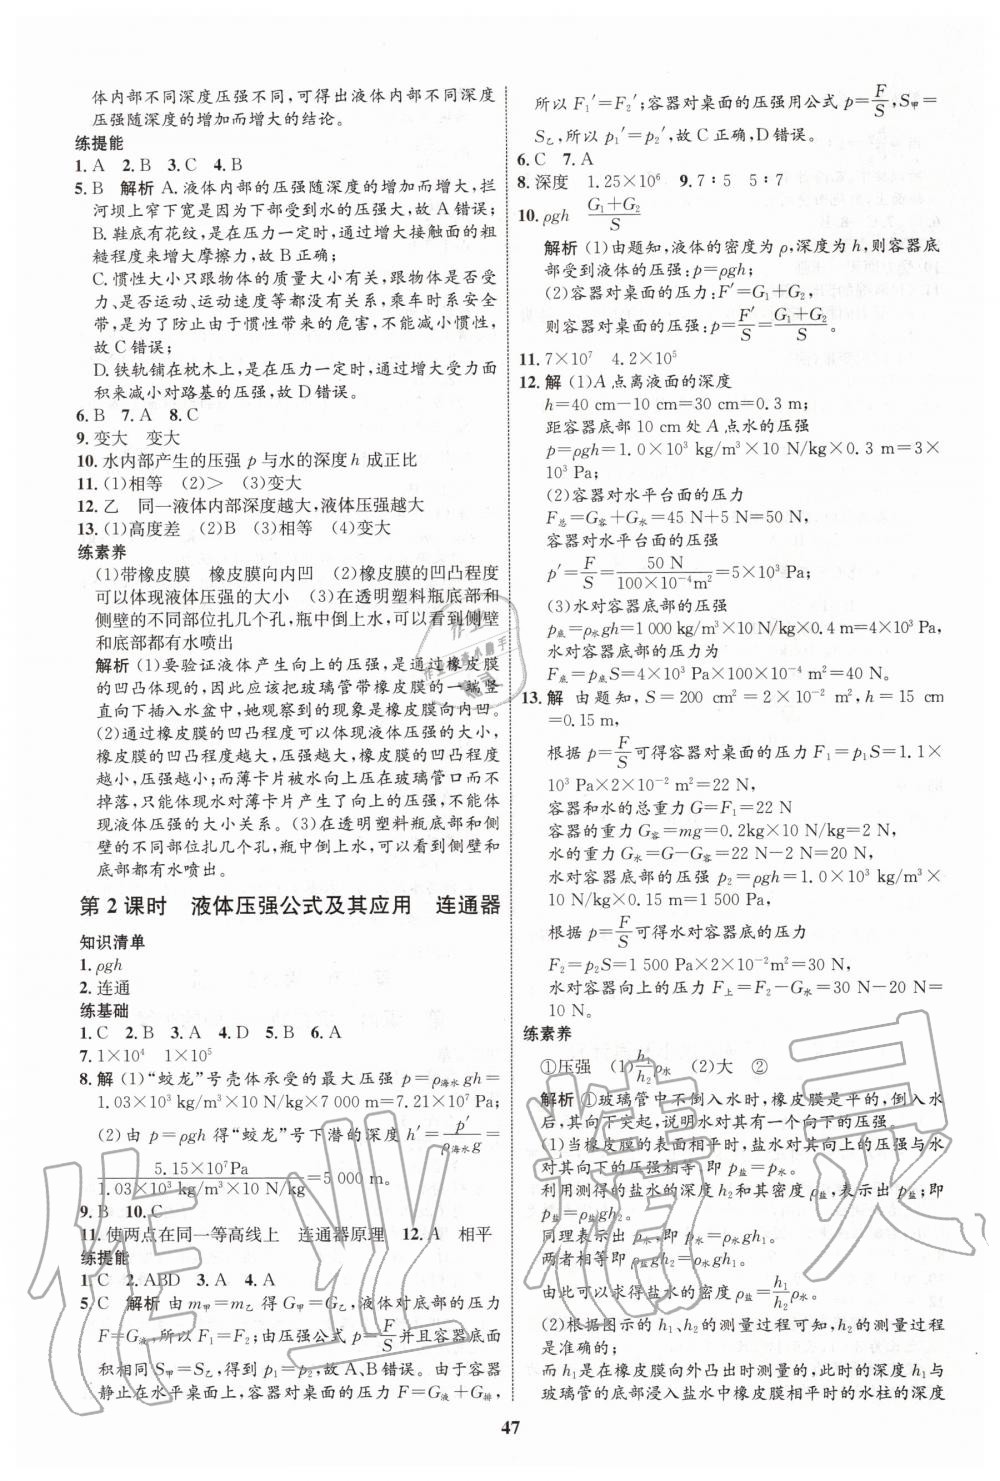 体内部不同深度压强不同,可得出液体内部不同深度
压强随深度的增加而增大的结论。
练提能
1. A 2. B 3. C 4. B
5. B 解析 A. 液体内部的压强随深度的增加而增大,拦
河坝上窄下宽是因为下部受到水的压强大,故 A 错误;
B. 鞋底有花纹,是在压力一定时,通过增大接触面的粗
糙程度来增大摩擦力,故 B 错误;
C. 惯性大小只跟物体的质量大小有关,跟物体是否受
力、是否运动、运动速度等都没有关系,乘车时系安全
带,是为了防止由于惯性带来的危害,不能减小惯性,
故 C 错误;
D. 铁轨铺在枕木上,是在压力一定时,通过增大受力面
积来减小对路基的压强,故 D 错误。
6. B 7. A 8. C
9. 变大 变大
10. 水内部产生的压强 p 与水的深度 h 成正比
11. (1)相等 (2)> (3)变大
12. 乙 同一液体内部深度越大,液体压强越大
13. (1)高度差 (2)B (3)相等 (4)变大
练素养
(1)带橡皮膜 橡皮膜向内凹 (2)橡皮膜的凹凸程度
可以体现液体压强的大小 (3)在透明塑料瓶底部和
侧壁的不同部位扎几个孔,瓶中倒上水,可以看到侧壁
和底部都有水喷出
解析 (1)要验证液体产生向上的压强,是通过橡皮膜
的凹凸体现的,因此应该把玻璃管带橡皮膜的一端竖
直向下插入水盆中,她观察到的现象是橡皮膜向内凹。
(2)通过橡皮膜的凹凸程度可以体现液体压强的大小,
橡皮膜的凹凸程度越大,压强越大,橡皮膜的凹凸程度
越小,压强越小;而薄卡片被水向上压在玻璃管口而不
掉落,只能体现水对薄卡片产生了向上的压强,不能体
现液体压强的大小关系。(3)在透明塑料瓶底部和侧
壁的不同部位扎几个孔,瓶中倒上水,可以看到侧壁和
底部都有水喷出。
第 2 课时 液体压强公式及其应用 连通器
知识清单
1. ρgh
2. 连通
练基础
1. C 2. B 3. A 4. D 5. B 6. A
7. 1×10⁴ 1×10⁵
8. 解 (1)“蛟龙”号壳体承受的最大压强 p=ρ海水gh=
1.03×10³ kg/m³×10 N/kg×7 000 m=7.21×10⁷Pa;
(2)由 p=ρgh 得“蛟龙”号下潜的深度 h′=p′/(ρ海水g)=
5.15×10⁷Pa/(1.03×10³ kg/m³×10 N/kg)=5 000 m。
9. B 10. C
11. 使两点在同一等高线上 连通器原理 12. A 相平
练提能
1. C 2. ABD 3. A 4. A
5. C 解析 由 m甲=m乙 得 G甲=G乙,液体对底部的压力
F=G液,所以 F₁=F₂;由压强公式 p=F/S 并且容器底部
面积相同 S甲=S乙,得到 p₁=p₂,故 A、B 错误。由于容器
静止在水平桌面上,容器对桌面的压力 F=G液+G排,
所以 F₁′=F₂′;容器对桌面的压强用公式 p=F/S,S甲=
S乙,所以 p₁′=p₂′,故 C 正确,D 错误。
6. C 7. A
8. 深度 1.25×10⁶ 9. 7∶5 5∶7
10. ρgh (G₁+G₂)/S
解析 (1)由题知,液体的密度为 ρ,深度为 h,则容器底
部受到液体的压强:p=ρgh;
(2)容器对桌面的压力:F′=G₁+G₂,
则容器对桌面的压强:p=F′/S=(G₁+G₂)/S。
11. 7×10⁷ 4.2×10⁵
12. 解 (1)A 点离液面的深度
h=40 cm−10 cm=30 cm=0.3 m;
距容器底部 10 cm 处 A 点水的压强
p=ρgh=1.0×10³ kg/m³×10 N/kg×0.3 m=3×
10³ Pa;
(2)容器对水平台面的压力
F总=G容+G水=45 N+5 N=50 N,
容器对水平台面的压强
p′=F/S=50 N/(100×10⁻⁴m²)=5×10³ Pa;
(3)水对容器底部的压强
p底=ρ水gh=1 000 kg/m³×10 N/kg×0.4 m=4×10³ Pa,
水对容器底部的压力为
F底=p底S=4×10³ Pa×100×10⁻⁴ m²=40 N。
13. 解 由题知,S=200 cm²=2×10⁻² m²,h=15 cm
=0.15 m,
根据 p=F/S可得容器对桌面的压力 F₁=p₁S=1.1×
10³ Pa×2×10⁻² m²=22 N,
容器和水的总重力 G=F₁=22 N
容器的重力 G容=mg=0.2kg×10 N/kg=2 N,
水的重力 G水=G−G容=22 N−2 N=20 N,
水对容器底部的压强 p₂=ρgh=1.0×10³ kg/m³×
10N/kg×0.15 m=1 500 Pa,
根据 p=F/S可得水对容器底的压力
F₂=p₂S=1 500 Pa×2×10⁻²m²=30N,
水对容器向上的压力 F上=F₂−G水=30 N−20 N=
10 N。
练素养
①压强 (1)h₁/h₂ρ水 (2)大 ②
解析 ①玻璃管中不倒入水时,橡皮膜是平的,倒入水
后,其向下突起,说明水对其有一个向下的压强。
(1)当橡皮膜的表面相平时,盐水对其向上的压强与水
对其向下的压强相等,即 p盐=p水。
利用测得的盐水的深度 h₂和其密度 ρ盐,表示出 p盐;即
p盐=ρ盐gh₂。
同理表示出 p水,即 p水=ρ水gh₁。
两者相等即 ρ盐gh₂=ρ水gh₁。
由此可以求得盐水的密度 ρ盐=h₁/h₂ρ水。
(2)根据图示的 h₁、h₂的测量过程可知,h₂的测量过程
是准确的。
而 h₁是在橡皮膜向外凸出时测量的,此时的深度 h₁与
玻璃管的底部浸入盐水中橡皮膜相平时的水柱的深度
47
作业精灵